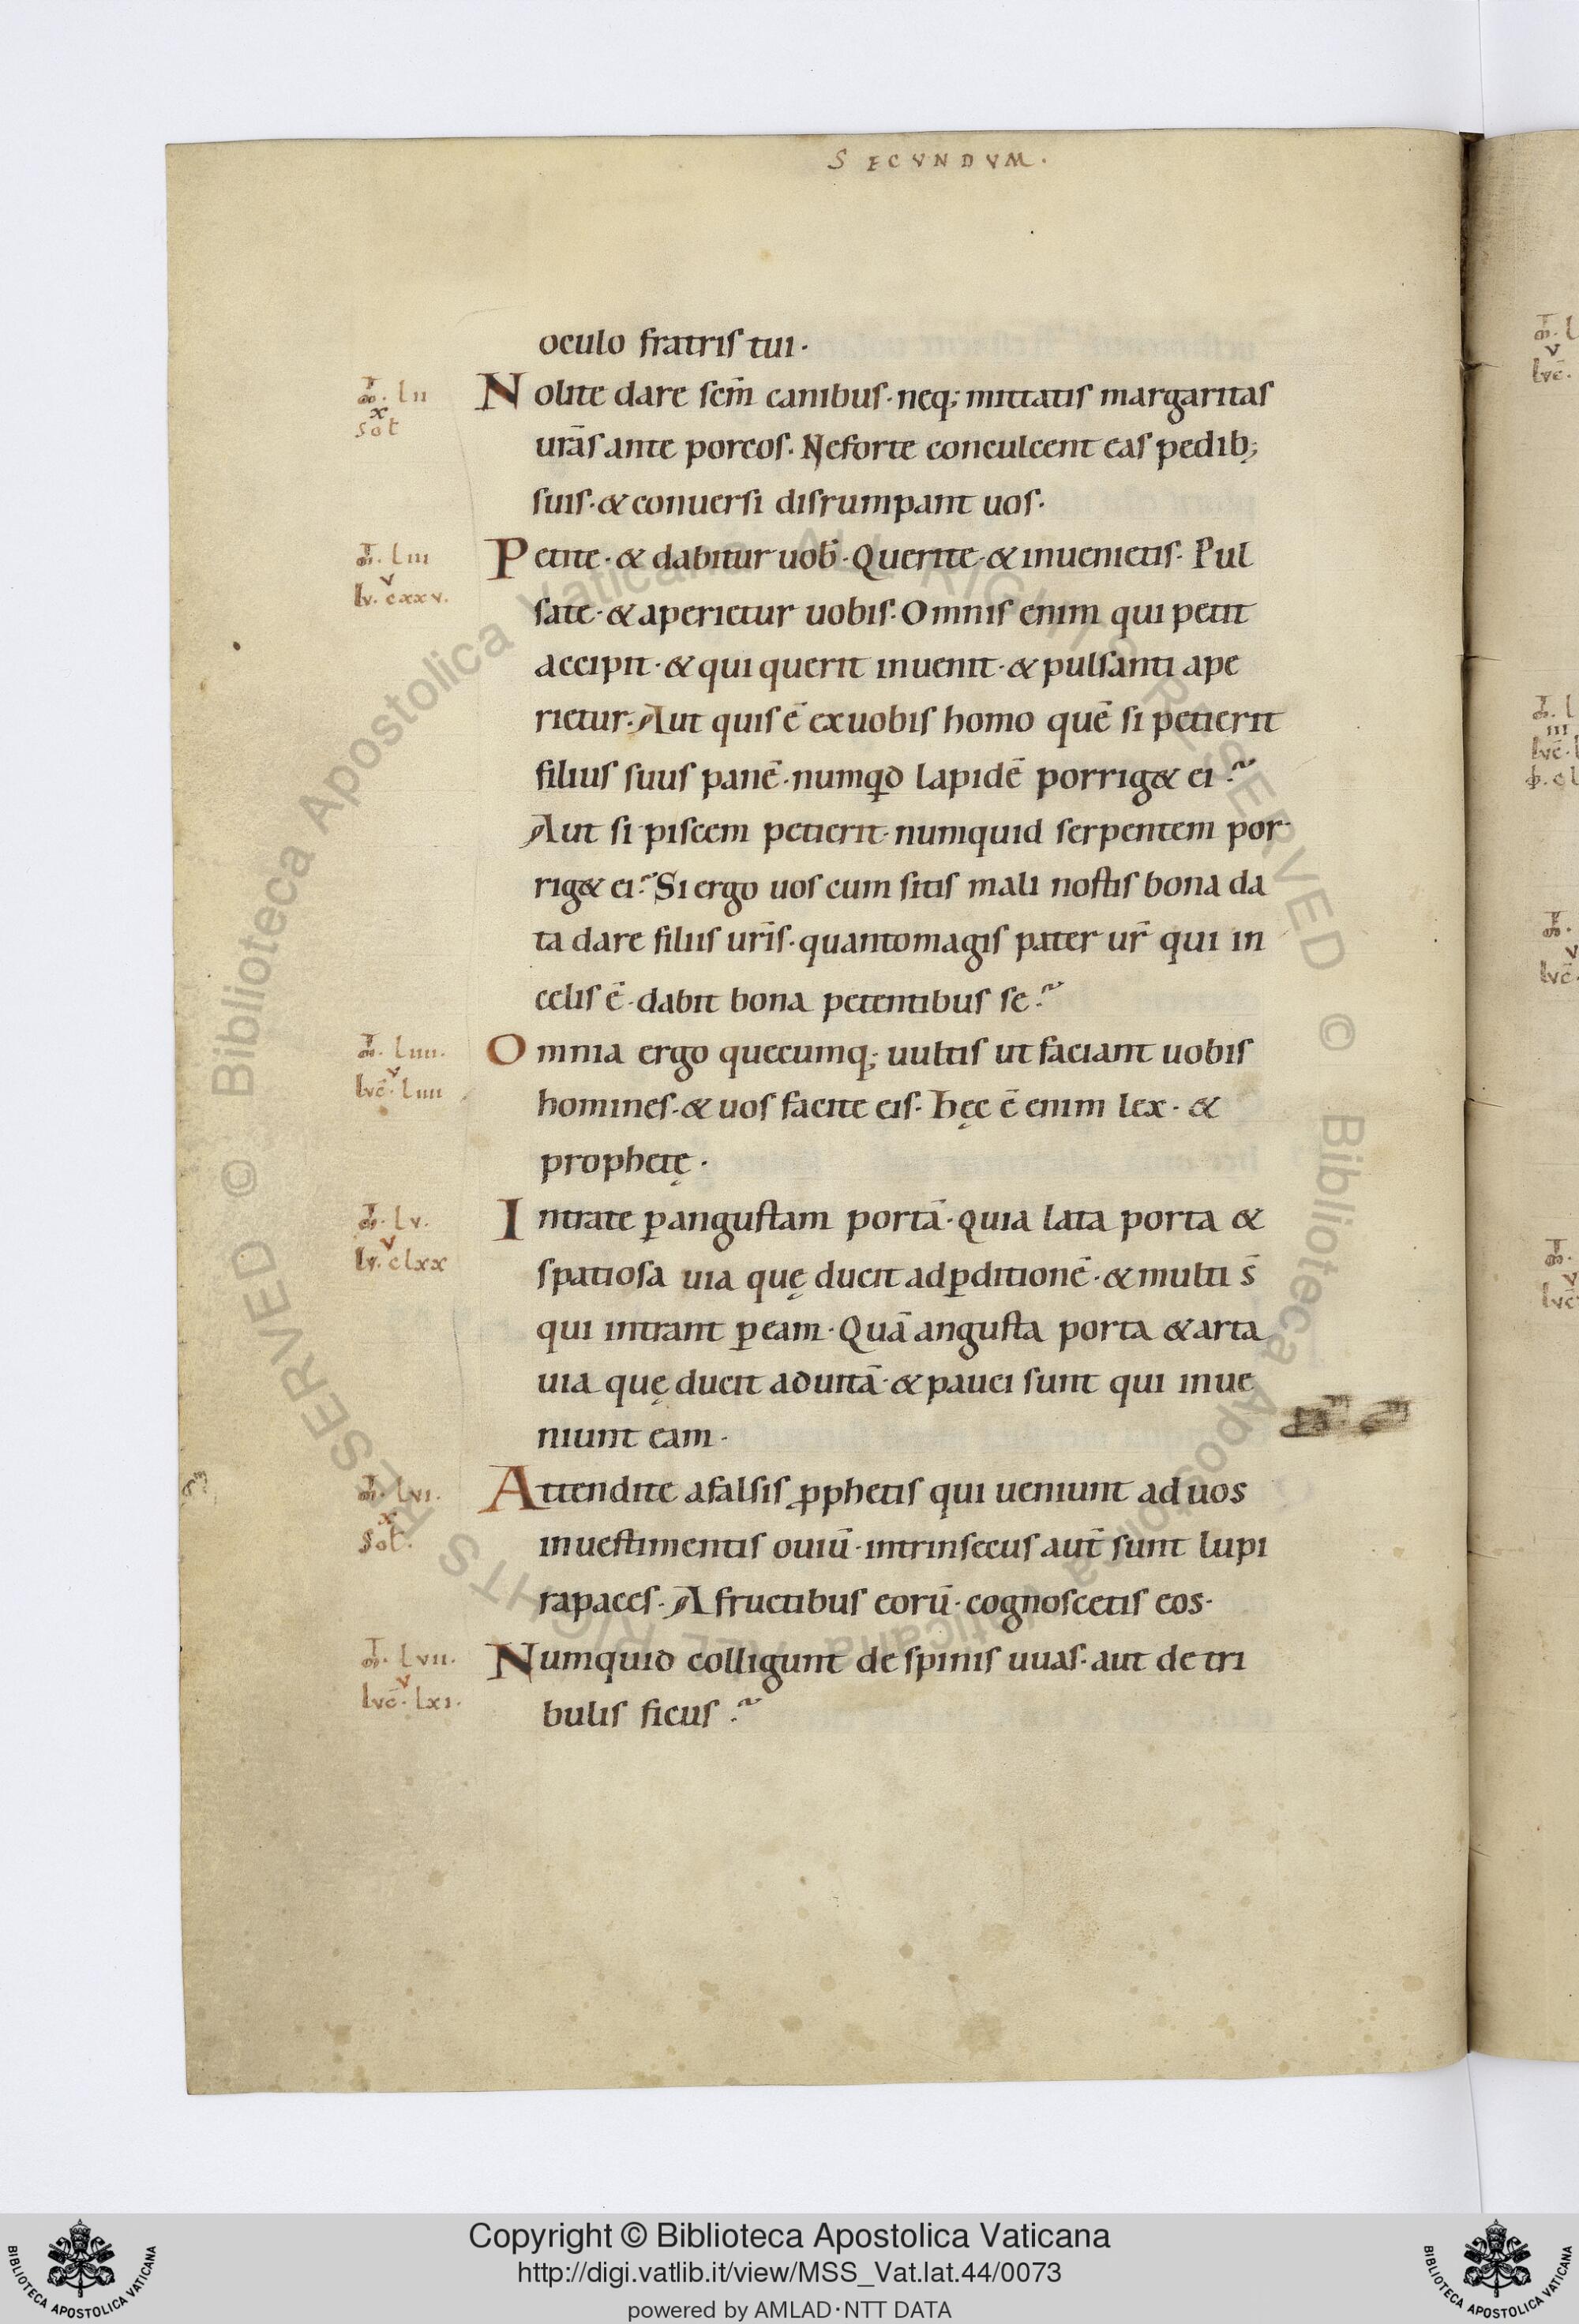 SECVNDVM.
oculo fratris tui·
Nolite dare scm̄ canibus· neq; mittatis margaritas
urās ante porcos. Neforte conculcent eas pedib;
suis· & conuersi disrumpant uos·
Petite· & dabitur uob̄· Querite· & inuenietis· Pul
sate· & aperietur uobis· Omnis enim qui petit
accipit· & qui querit inuenit· & pulsanti ape
rietur· Aut quis ē ex uobis homo quē si petierit
filius suus panē· numqd lapidē porrig& ei?
Aut si piscem petierit· numquid serpentem por
rig& ei? Si ergo uos cum sitis mali nostis bona da
ta dare filiis urīs· quantomagis pater ur̄ qui in
celis ē· dabit bona petentibus se?
Omnia ergo quecumq; uultis ut faciant uobis
homines· & uos facite eis· Hęc ē enim lex· &
prophetę·
Intrate ꝑ angustam portā· Quia lata porta &
spatiosa uia quę ducit ad ꝑditionē· & multi s̄
qui intrant ꝑ eam· Quā angusta porta & arta
uia quę ducit ad uitā· & pauci sunt qui inue
niunt eam·
Attendite a falsis ꝓphetis qui ueniunt ad uos
in uestimentis ouiū· intrinsecus aut̄ sunt lupi
rapaces· A fructibus eorū· cognoscetis eos·
Numquid colligunt de spinis uuas· aut de tri
bulis ficus?
lii
x
sol
liii
v
lv. cxxv.
liiii.
v
lvc̄. liiii
lv.
v
lv. clxx
lvi.
x
sol.
lvii.
v
lvc̄. lxi.
© Biblioteca Apostolica Vaticana ALL RIGHTS RESERVED © Biblioteca Apostolica Vaticana ALL RIGHTS RESERVED
Copyright © Biblioteca Apostolica Vaticana
http://digi.vatlib.it/view/MSS_Vat.lat.44/0073
powered by AMLAD·NTT DATA
BIBLIOTECA APOSTOLICA VATICANA
BIBLIOTECA APOSTOLICA VATICANA